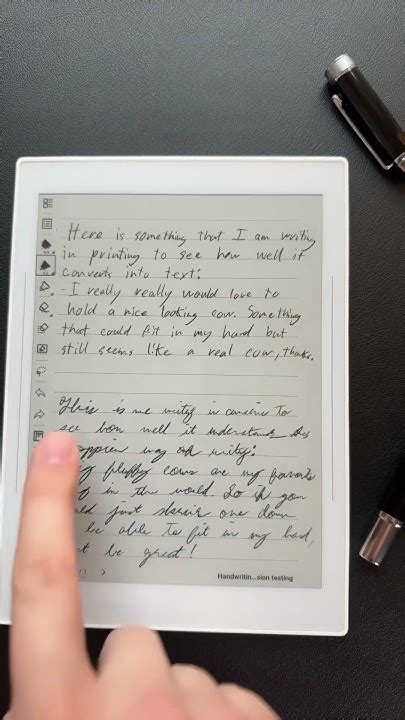 Here is something that I am writing
in printing to see how well it
converts into text:
- I really really would love to
hold a nice looking cow. Something
that could fit in my hand but
still seems like a real cow, thanks.
This is me writing in cursive to
see how well it understands this
way of writing:
fluffy cows are my favorite
in the world. So if you
just one down
be able to fit in my hand,
be great!
Handwritin...sion testing